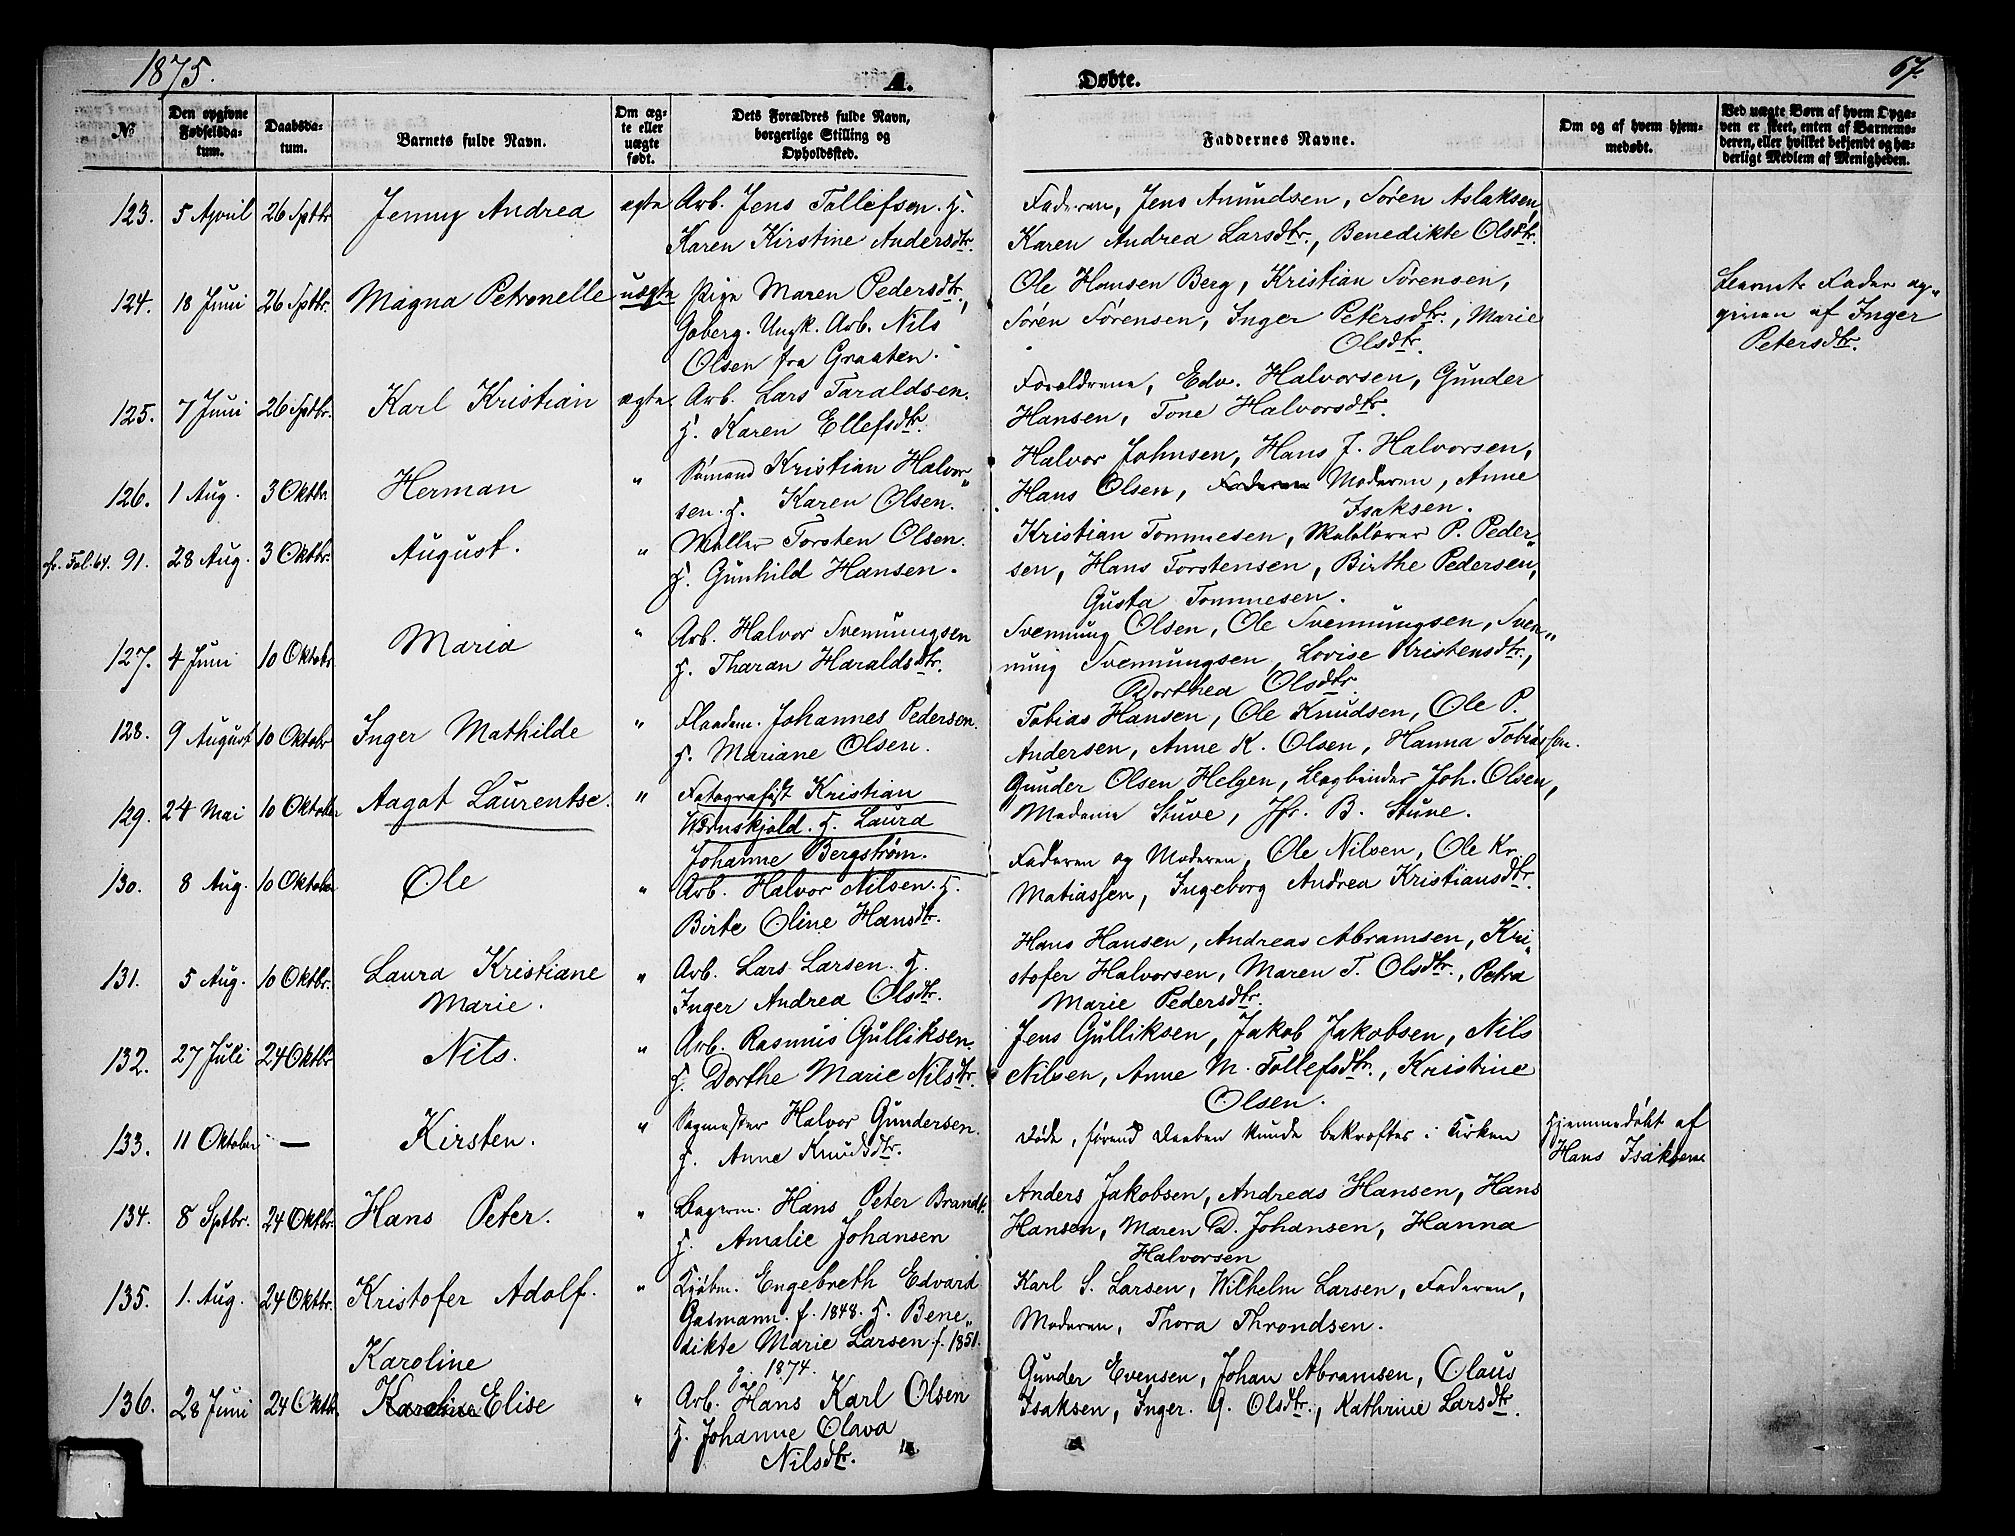 1875.
A.
Døbte.
67.
No
Den opgivne Fødselsdatum.
Daabsdatum.
Barnets fulde Navn.
Om ægte eller uægte født.
Dets Forældres fulde Navn, borgerlige Stilling og Opholdssted.
Faddernes Navne.
Om og af hvem hjemmedøbt.
Ved uægte Børn af hvem Opgaven er skeet, enten af Barnemoderen, eller hvilket bekjendt og hæderligt Medlem af Menigheden.
123. 5 April 26 Sptbr Jenny Andrea ægte Arb. Jens Tollefsen. H.
Karen Kirstine Andersdtr.
Faderen, Jens Amundsen, Søren Aslaksen,
Karen Andrea Larsdtr., Benedikte Olsdtr.
124. 18 Juni 26 Sptbr. Magna Petronelle uægte Pige Maren Pedersdtr.,
Goberg. Ungk. Arb. Nils
Olsen fra Graaten.
Ole Hansen Berg, Kristian Sørensen,
Søren Sørensen, Inger Petersdtr., Marie
Olsdtr.
Barnets Fader op-
given af Inger
Petersdtr.
125. 7 Juni 26 Sptbr. Karl Kristian ægte Arb. Lars Taraldsen.
H. Karen Ellefsdtr.
Forældrene, Edv. Halvorsen, Gunder
Hansen, Tone Halvorsdtr.
126. 1 Aug. 3 Oktbr. Herman " Sømand Kristian Halvor-
sen. H. Karen Olsen.
Halvor Johnsen, Hans J. Halvorsen,
Hans Olsen, Faderen Moderen, Anne
Isaksen.
cfr. Fol. 64. 91. 28 Aug. 3 Oktbr. August. " Møller Torsten Olsen.
H. Gunhild Hansen.
Kristian Tommesen, Skolelærer P. Peder-
sen, Hans Torstensen, Birthe Pedersen,
Gusta Tommesen.
127. 4 Juni 10 Oktobr Maria " Arb. Halvor Svennungsen
H. Tharan Haraldsdtr.
Svennung Olsen, Ole Svennungsen, Sven-
nung Svennungsen, Lovise Kristensdtr.,
Dorthea Olsdtr.
128. 9 August 10 Oktobr Inger Mathilde " Flaadem. Johannes Pedersen.
H. Mariane Olsen.
Tobias Hansen, Ole Knudsen, Ole P.
Andersen, Anne K. Olsen, Hanna Tobiassen.
129. 24 Mai 10 Oktober Aagot Laurentse. " Fotografist Kristian
Wærnskjold. H. Laura
Johanne Bergstrøm.
Gunder Olsen Helgen, Bogbinder Joh. Olsen,
Madame Stuve, Jfr. B. Stuve.
130. 8 Aug. 10 Oktober Ole " Arb. Halvor Nilsen. H.
Birte Oline Hansdtr.
Faderen og Moderen, Ole Nilsen, Ole Kr.
Matiassen, Ingeborg Andrea Kristiansdtr.
131. 5 Aug. 10 Oktbr. Laura Kristiane
Marie. " Arb. Lars Larsen. H.
Inger Andrea Olsdtr.
Hans Hansen, Andreas Abramsen, Kri-
stofer Halvorsen, Maren T. Olsdtr., Petra
Marie Pedersdtr.
132. 27 Juli 24 Oktbr Nils. " Arb. Rasmus Gulliksen.
H. Dorthe Marie Nilsdtr.
Jens Gulliksen, Jakob Jakobsen, Nils
Nilsen, Anne M. Tollefsdtr., Kristine
Olsen.
133. 11 Oktober — Kirsten. " Sagmester Halvor Gundersen.
H. Anne Knudsdtr.
Døde, førend Daaben kunde bekræftes i Kirken
Hjemmedøbt af
Hans Isaksen
134. 8 Sptbr. 24 Oktbr. Hans Peter. " Bagerm. Hans Peter Brandt.
H. Amalie Johansen
Anders Jakobsen, Andreas Hansen, Hans
Hansen, Maren D. Johansen, Hanna
Halvorsen
135. 1. Aug. 24 Oktbr. Kristofer Adolf. " Kjøbm. Engebreth Edvard
Gasmann. f. 1848. H. Bene-
dikte Marie Larsen. f. 1851.
1874.
Karl S. Larsen, Wilhelm Larsen, Faderen,
Moderen, Thora Throndsen.
136. 28 Juni 24 Oktb. Karoline
Karoline Elise " Arb. Hans Karl Olsen
H. Johanne Olava
Nilsdtr.
Gunder Evensen, Johan Abramsen, Olaus
Isaksen, Inger. G. Olsdtr., Kathrine Larsdtr.